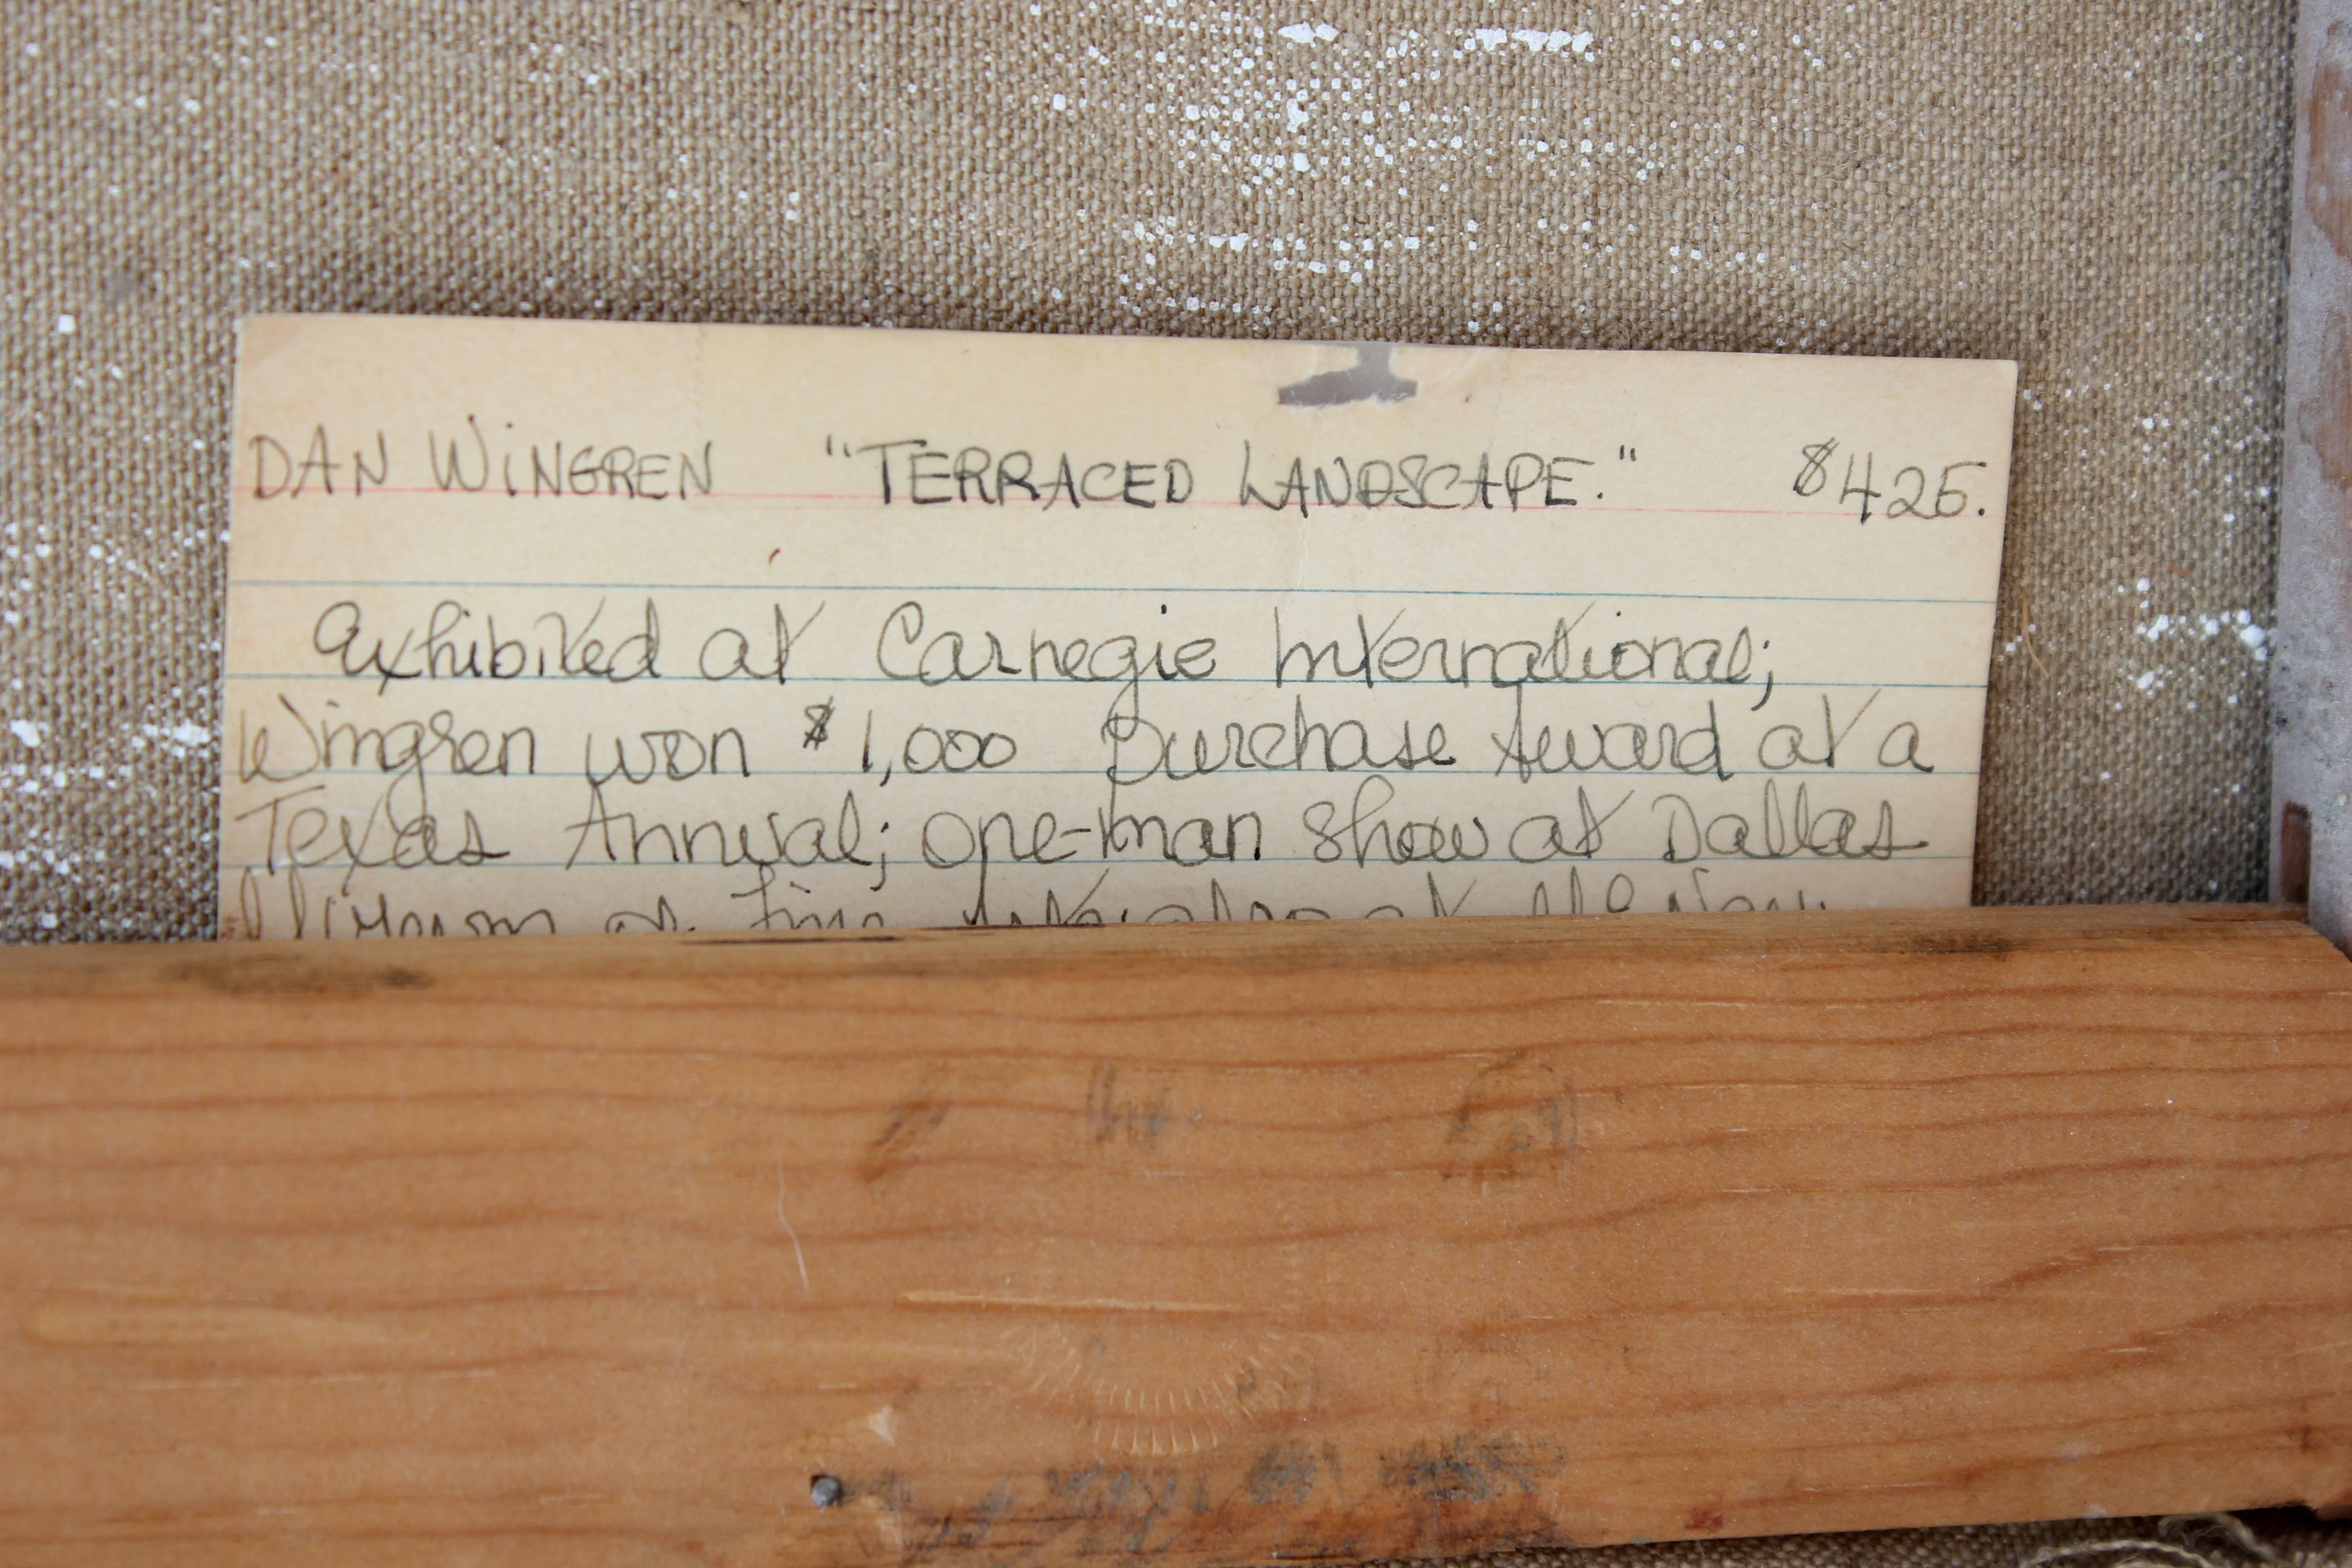 DAN WINGREN "TERRACED LANDSCAPE." $425.
Exhibited at Carnegie International;
Wingren won $1,000 Purchase Award at a
Texas Annual; one-man show at Dallas
Museum of Fine Arts; also at the New